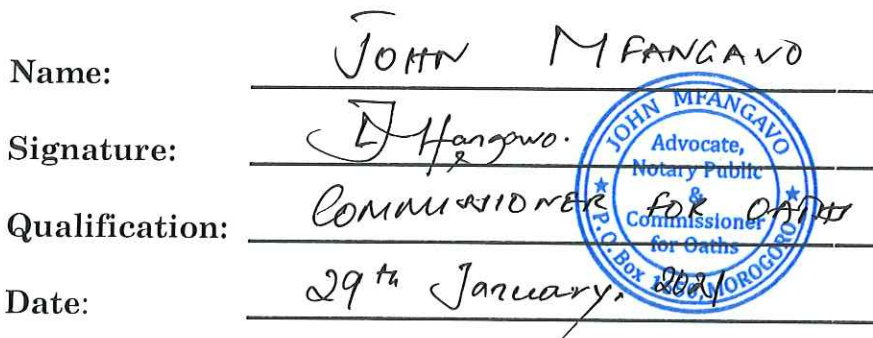 Name: JOHN MFANGAVO
Signature: Mfangavo.
Qualification: COMMISSIONER FOR OATHS
Date: 29th January, 2021
JOHN MFANGAVO
Advocate,
Notary Public
&
Commissioner
for Oaths
P.O. Box MOROGORO